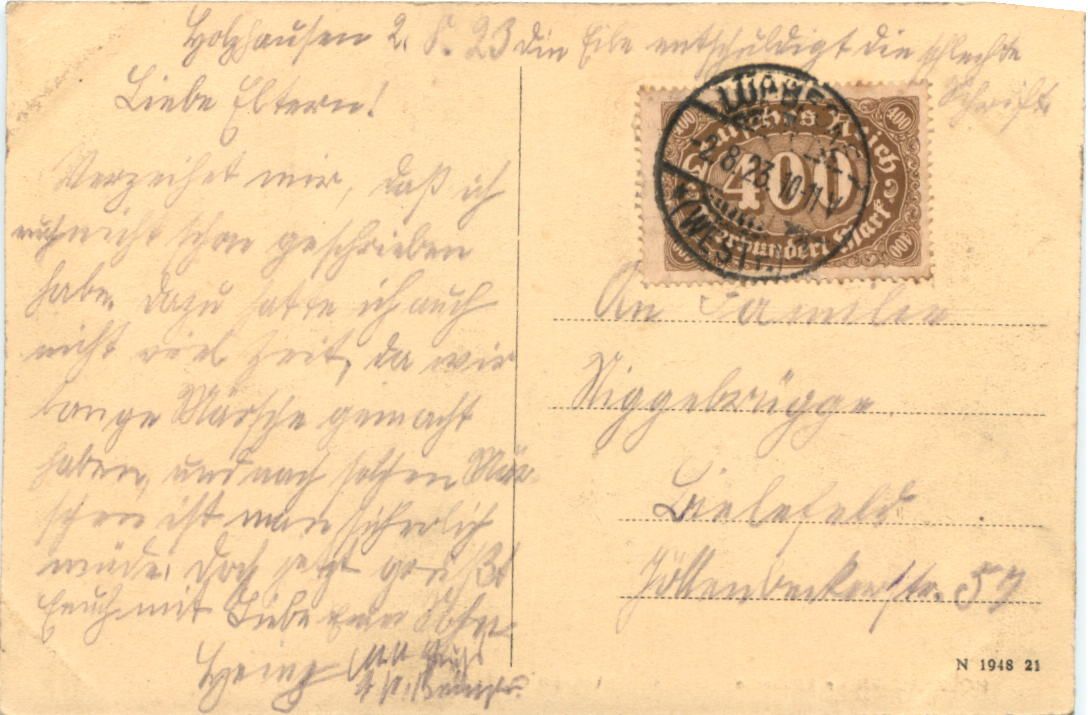 Holzhausen 2. 8. 23 die Eile entschuldigt die schlechte
Schrift.
Liebe Eltern!
Verzeihet mir, daß ich
noch nicht schon geschrieben
habe. Dazu hatte ich auch
nicht viel Zeit, da wir
lange Märsche gemacht
haben, und nach solchen Mär-
schen ist man sicherlich
müde. Doch jetzt grüßt
Euch mit Liebe euer Sohn
Heinz
400 400
Deutsches Reich
400
Vierhundert Mark
400
LÜBBECKE
-2.8.23.10-11 V
(WESTF.)
An Familie
Niggebrügge
Bielefeld
Jöllenbeckerstr. 57
N 1948 21